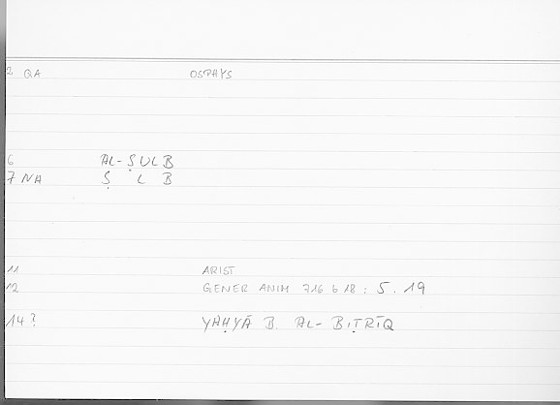 2 QA OSPHYS
6 AL-ṢULB
7 NA Ṣ L B
11 ARIST
12 GENER ANIM 716 b 18 : 5.19
14? YAḤYĀ B. AL-BIṬRĪQ